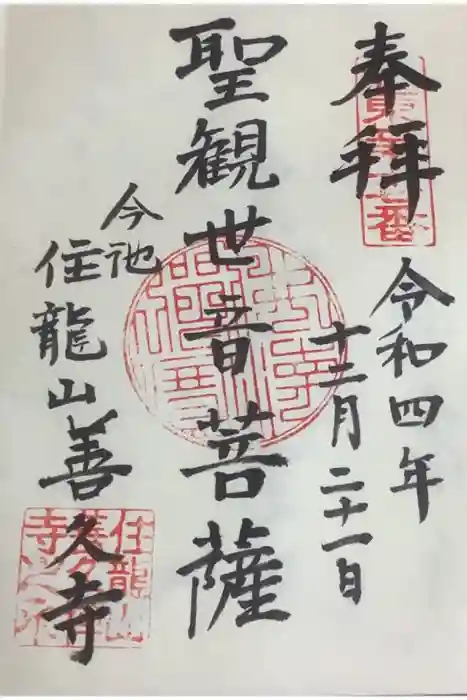 奉拝
令和四年
十二月二十一日
聖観世音菩薩
今池
住龍山善久寺
住龍山
善久
寺之印